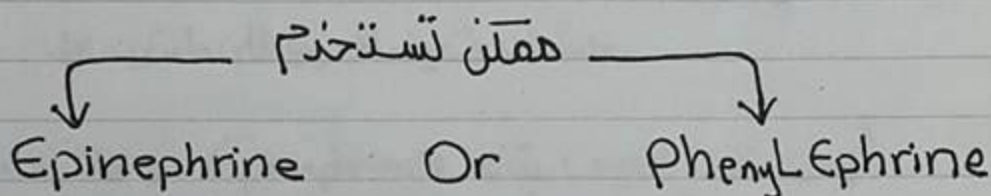 ممكن تستخدم
Epinephrine Or PhenyL Ephrine